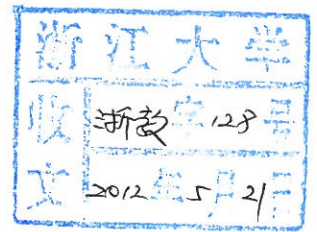 浙江大学
收 浙教字128号
文 2012年5月21日